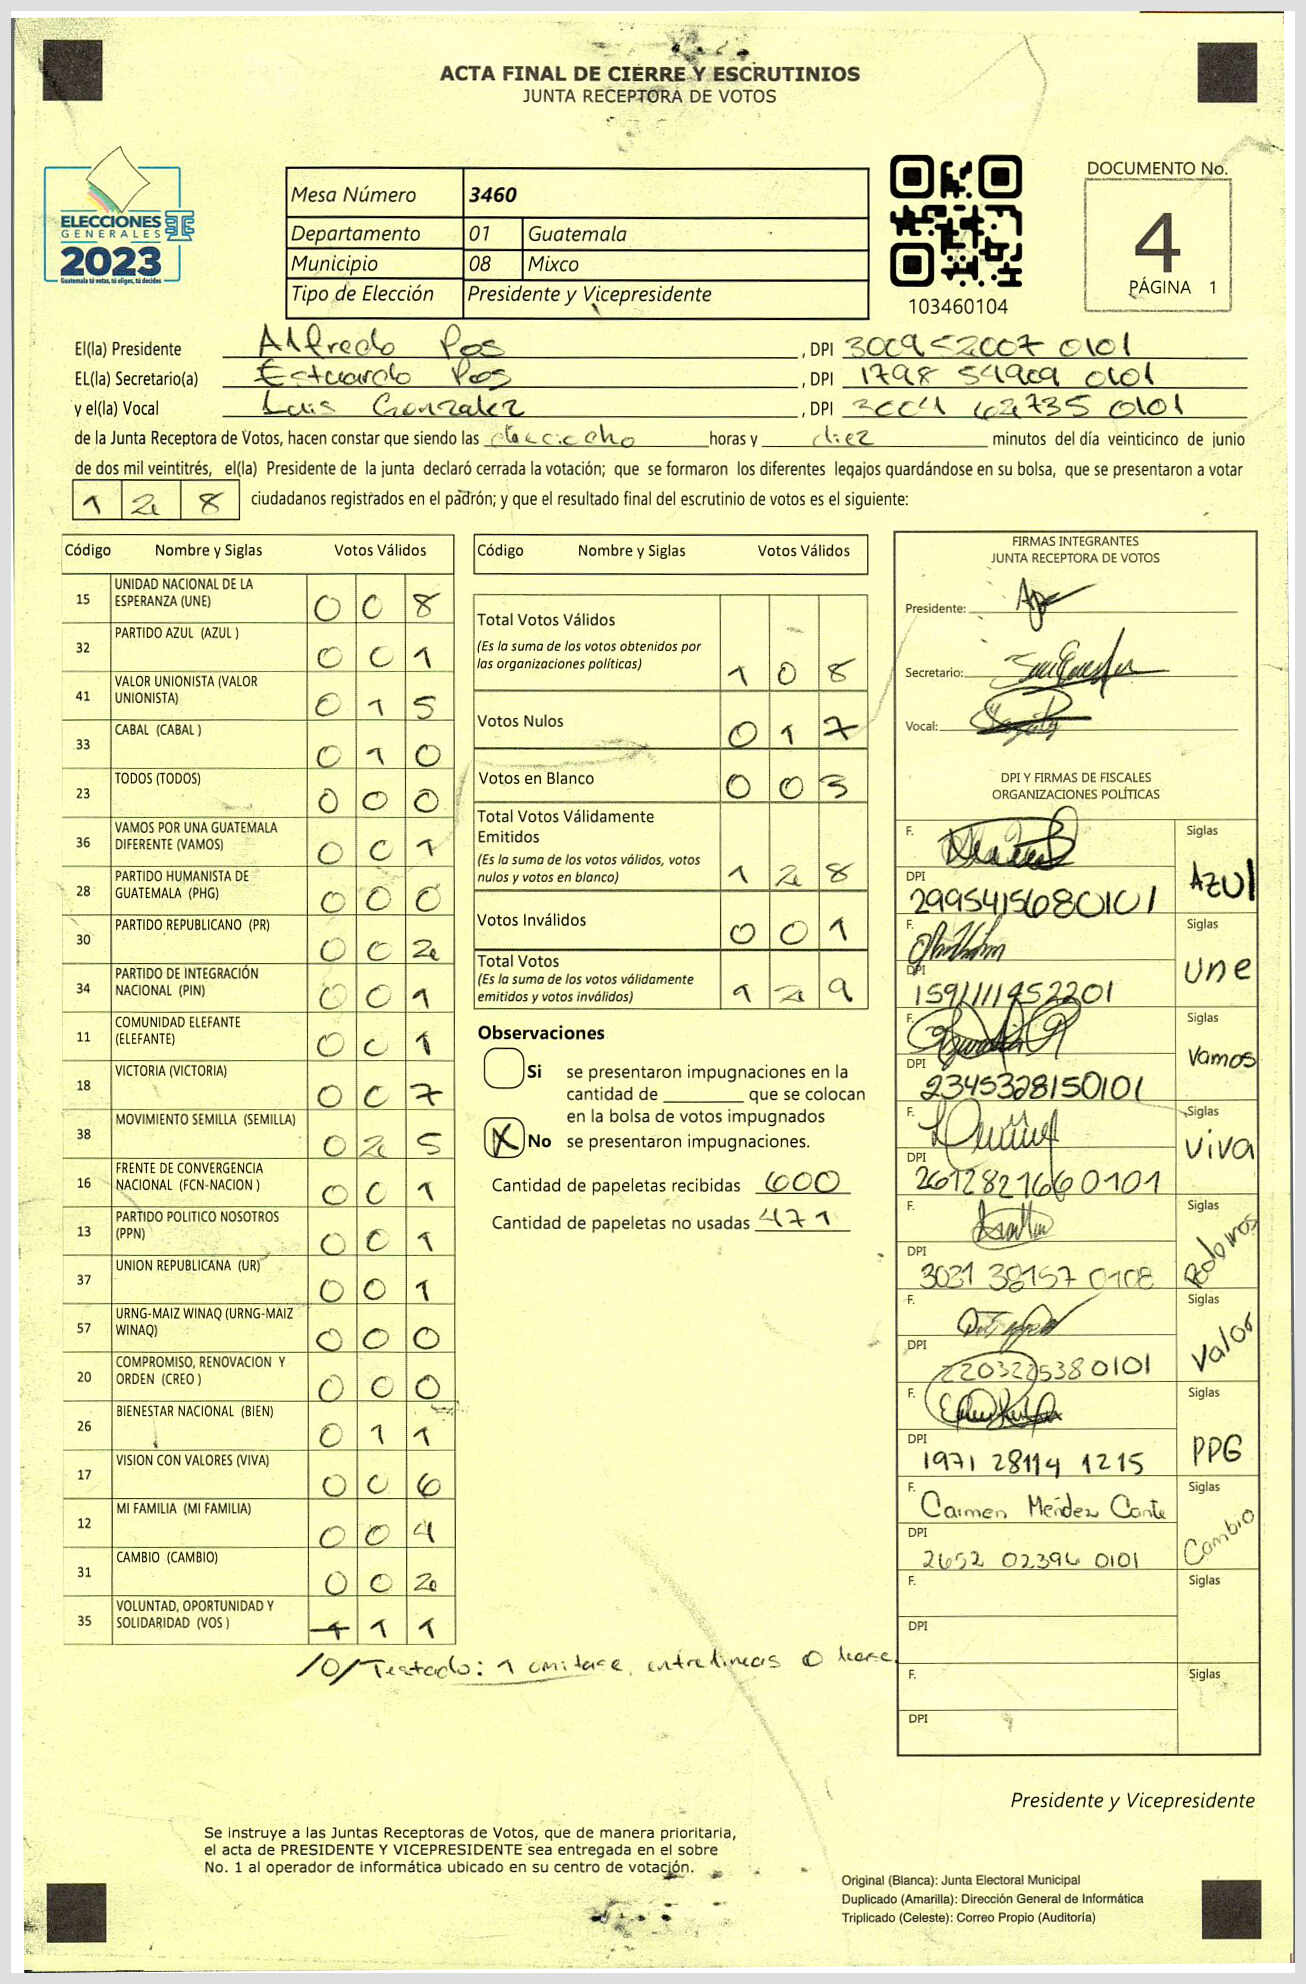 ACTA FINAL DE CIERRE Y ESCRUTINIOS
JUNTA RECEPTORA DE VOTOS
ELECCIONES
GENERALES
2023
Guatemala tú votas, tú eliges, tú decides
Mesa Número 3460
Departamento 01 Guatemala
Municipio 08 Mixco
Tipo de Elección Presidente y Vicepresidente
103460104
DOCUMENTO No.
4
PÁGINA 1
El(la) Presidente Alfredo Pos , DPI 300952007 0101
EL(la) Secretario(a) Estuardo Pos , DPI 1798 54909 0101
y el(la) Vocal Luis Gonzalez , DPI 3004 62735 0101
de la Junta Receptora de Votos, hacen constar que siendo las dieciocho horas y diez minutos del día veinticinco de junio
de dos mil veintitrés, el(la) Presidente de la junta declaró cerrada la votación; que se formaron los diferentes legajos guardándose en su bolsa, que se presentaron a votar
1 2 8 ciudadanos registrados en el padrón; y que el resultado final del escrutinio de votos es el siguiente:
Código Nombre y Siglas Votos Válidos
15 UNIDAD NACIONAL DE LA ESPERANZA (UNE) 0 0 8
32 PARTIDO AZUL (AZUL ) 0 0 1
41 VALOR UNIONISTA (VALOR UNIONISTA) 0 1 5
33 CABAL (CABAL ) 0 1 0
23 TODOS (TODOS) 0 0 0
36 VAMOS POR UNA GUATEMALA DIFERENTE (VAMOS) 0 0 1
28 PARTIDO HUMANISTA DE GUATEMALA (PHG) 0 0 0
30 PARTIDO REPUBLICANO (PR) 0 0 2
34 PARTIDO DE INTEGRACIÓN NACIONAL (PIN) 0 0 1
11 COMUNIDAD ELEFANTE (ELEFANTE) 0 0 1
18 VICTORIA (VICTORIA) 0 0 7
38 MOVIMIENTO SEMILLA (SEMILLA) 0 2 5
16 FRENTE DE CONVERGENCIA NACIONAL (FCN-NACION ) 0 0 1
13 PARTIDO POLITICO NOSOTROS (PPN) 0 0 1
37 UNION REPUBLICANA (UR) 0 0 1
57 URNG-MAIZ WINAQ (URNG-MAIZ WINAQ) 0 0 0
20 COMPROMISO, RENOVACION Y ORDEN (CREO ) 0 0 0
26 BIENESTAR NACIONAL (BIEN) 0 1 1
17 VISION CON VALORES (VIVA) 0 0 6
12 MI FAMILIA (MI FAMILIA) 0 0 4
31 CAMBIO (CAMBIO) 0 0 2
35 VOLUNTAD, OPORTUNIDAD Y SOLIDARIDAD (VOS ) 1 1 1
/0/ Testado: 1 omitase, entrelineas 0 lease.
Código Nombre y Siglas Votos Válidos
Total Votos Válidos 1 0 8
(Es la suma de los votos obtenidos por
las organizaciones políticas)
Votos Nulos 0 1 7
Votos en Blanco 0 0 3
Total Votos Válidamente
Emitidos 1 2 8
(Es la suma de los votos válidos, votos
nulos y votos en blanco)
Votos Inválidos 0 0 1
Total Votos 1 2 9
(Es la suma de los votos válidamente
emitidos y votos inválidos)
Observaciones
Si se presentaron impugnaciones en la
cantidad de ________ que se colocan
en la bolsa de votos impugnados
X No se presentaron impugnaciones.
Cantidad de papeletas recibidas 600
Cantidad de papeletas no usadas 471
FIRMAS INTEGRANTES
JUNTA RECEPTORA DE VOTOS
Presidente:
Secretario:
Vocal:
DPI Y FIRMAS DE FISCALES
ORGANIZACIONES POLÍTICAS
F. Siglas
DPI AZUL
2995415680101
F. Siglas
DPI une
1591111952201
F. Siglas
DPI Vamos
2345328150101
F. Siglas
DPI Viva
2612821660101
F. Siglas
DPI Podemos
3031 38157 0108
F. Siglas
DPI Valor
2203225380101
F. Siglas
DPI PPG
1971 28114 1215
F. Carmen Méndez Siglas
DPI Cambio
2652 02396 0101
F. Siglas
DPI
F. Siglas
DPI
Presidente y Vicepresidente
Se instruye a las Juntas Receptoras de Votos, que de manera prioritaria,
el acta de PRESIDENTE Y VICEPRESIDENTE sea entregada en el sobre
No. 1 al operador de informática ubicado en su centro de votación.
Original (Blanca): Junta Electoral Municipal
Duplicado (Amarilla): Dirección General de Informática
Triplicado (Celeste): Correo Propio (Auditoría)